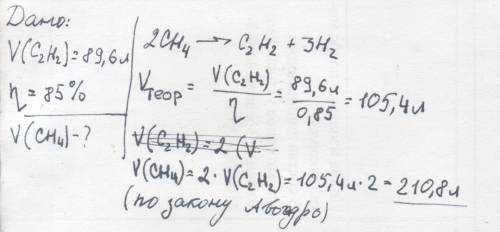 Дано:
V(C₂H₂)=89,6л
η = 85%
V(CH₄)-?
2CH₄ → C₂H₂ + 3H₂
Vтеор = V(C₂H₂)/η = 89,6л/0,85 = 105,4л
V(C₂H₂) = 2 (V
V(CH₄) = 2 · V(C₂H₂) = 105,4л · 2 = 210,8л
(по закону Авогадро)